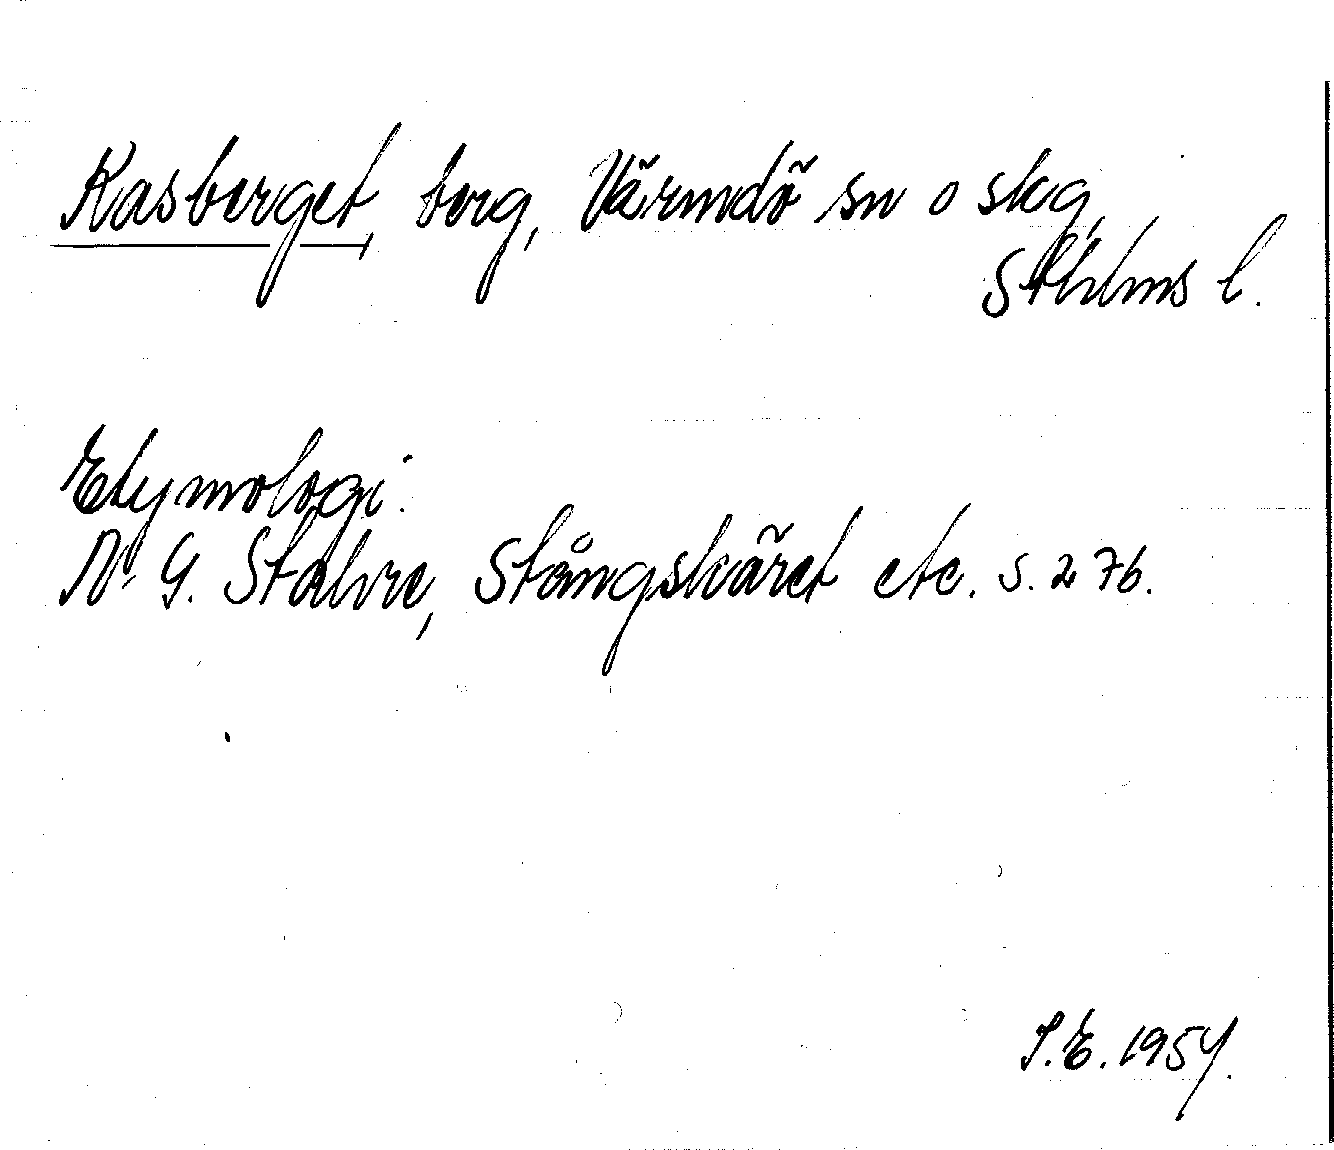 Kasberget, berg, Värmdö sn o skg,
Sthlms l.
Etymologi:
N. G. Stahre, Stångskäret etc. s. 276.
S.E. 1954.